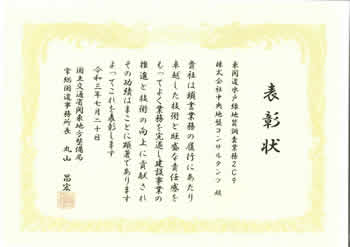 表彰状
東関道水戸線地質調査業務2C9
株式会社中央地盤コンサルタンツ 殿
貴社は頭書業務の履行にあたり
卓越した技術と旺盛な責任感を
もってよく業務を完遂し建設事業の
推進と技術の向上に貢献され
その功績はまことに顕著であります
よってこれを表彰します
令和三年七月二十日
国土交通省関東地方整備局
常総国道事務所長 丸山 昌宏